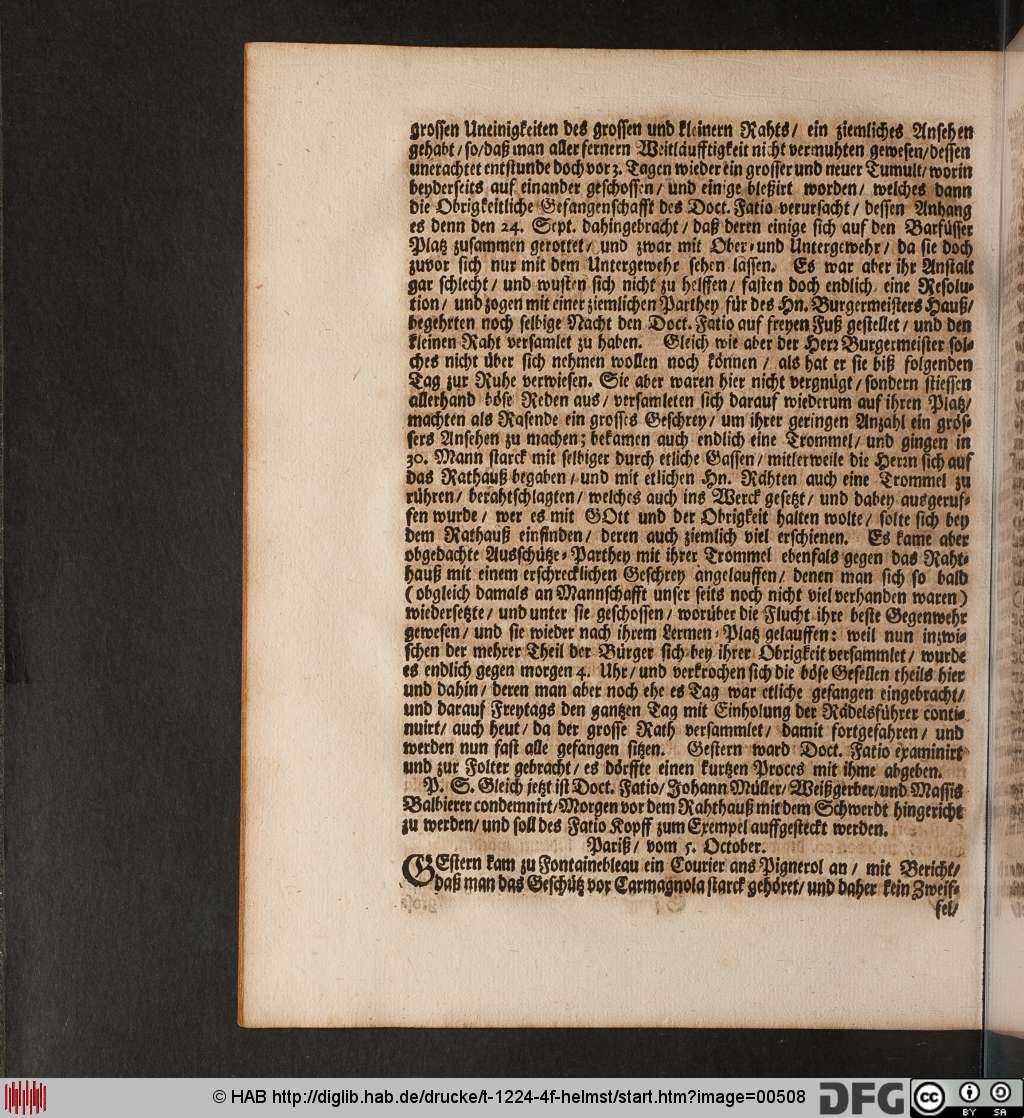 grossen Uneinigkeiten des grossen und kleinern Rahts/ ein ziemliches Ansehen
gehabt/ so/ daß man aller fernern Weitläufftigkeit nicht vermuhten gewesen/ dessen
unerachtet entstunde doch vor 3. Tagen wieder ein grosser und neuer Tumult/ worin
beyderseits auf einander geschossen/ und einige bleßirt worden/ welches dann
die Obrigkeitliche Gefangenschafft des Doct. Fatio verursacht/ dessen Anhang
es denn den 24. Sept. dahingebracht/ daß deren einige sich auf den Barfüsser
Platz zusammen gerottet/ und zwar mit Ober- und Untergewehr/ da sie doch
zuvor sich nur mit dem Untergewehr sehen lassen. Es war aber ihr Anstalt
gar schlecht/ und wusten sich nicht zu helffen/ fasten doch endlich eine Resolu-
tion/ und zogen mit einer ziemlichen Parthey für des Hn. Burgermeisters Hauß/
begehrten noch selbige Nacht den Doct. Fatio auf freyen Fuß gestellet/ und den
kleinen Raht versamlet zu haben. Gleich wie aber der Herr Burgermeister sol-
ches nicht über sich nehmen wollen noch können/ als hat er sie biß folgenden
Tag zur Ruhe verwiesen. Sie aber waren hier nicht vergnügt/ sondern stiessen
allerhand böse Reden aus/ versamleten sich darauf wiederum auf ihren Platz/
machten als Rasende ein grosses Geschrey/ um ihrer geringen Anzahl ein grös-
sers Ansehen zu machen; bekamen auch endlich eine Trommel/ und gingen in
30. Mann starck mit selbiger durch etliche Gassen/ mitlerweile die Herrn sich auf
das Rathauß begaben/ und mit etlichen Hn. Rähten auch eine Trommel zu
rühren/ berahtschlagten/ welches auch ins Werck gesetzt/ und dabey ausgeruf-
fen wurde/ wer es mit GOtt und der Obrigkeit halten wolte/ solte sich bey
dem Rathauß einfinden/ deren auch ziemlich viel erschienen. Es kame aber
obgedachte Ausschütze-Parthey mit ihrer Trommel ebenfals gegen das Raht-
hauß mit einem erschrecklichen Geschrey angelauffen/ denen man sich so bald
(obgleich damals an Mannschafft unser seits noch nicht viel verhanden waren)
wiedersetzte/ und unter sie geschossen/ worüber die Flucht ihre beste Gegenwehr
gewesen/ und sie wieder nach ihrem Lermen-Platz gelauffen: weil nun inzwi-
schen der mehrer Theil der Bürger sich bey ihrer Obrigkeit versammlet/ wurde
es endlich gegen morgen 4. Uhr/ und verkrochen sich die böse Gesellen theils hier
und dahin/ deren man aber noch ehe es Tag war etliche gefangen eingebracht/
und darauf Freytags den gantzen Tag mit Einholung der Rädelsführer conti-
nuirt/ auch heut/ da der grosse Rath versammlet/ damit fortgefahren/ und
werden nun fast alle gefangen sitzen. Gestern ward Doct. Fatio examinirt
und zur Folter gebracht/ es dörffte einen kurtzen Proces mit ihme abgeben.
P. S. Gleich jetzt ist Doct. Fatio/ Johann Müller/ Weißgerber/ und Massis
Balbierer condemnirt/ Morgen vor dem Rahthauß mit dem Schwerdt hingericht
zu werden/ und soll des Fatio Kopff zum Exempel auffgesteckt werden.
Pariß/ vom 5. October.
GEstern kam zu Fontainebleau ein Courier ans Pignerol an/ mit Bericht/
daß man das Geschütz vor Carmagnola starck gehöret/ und daher kein Zweif-
fel/
© HAB http://diglib.hab.de/drucke/t-1224-4f-helmst/start.htm?image=00508
DFG
cc
BY SA